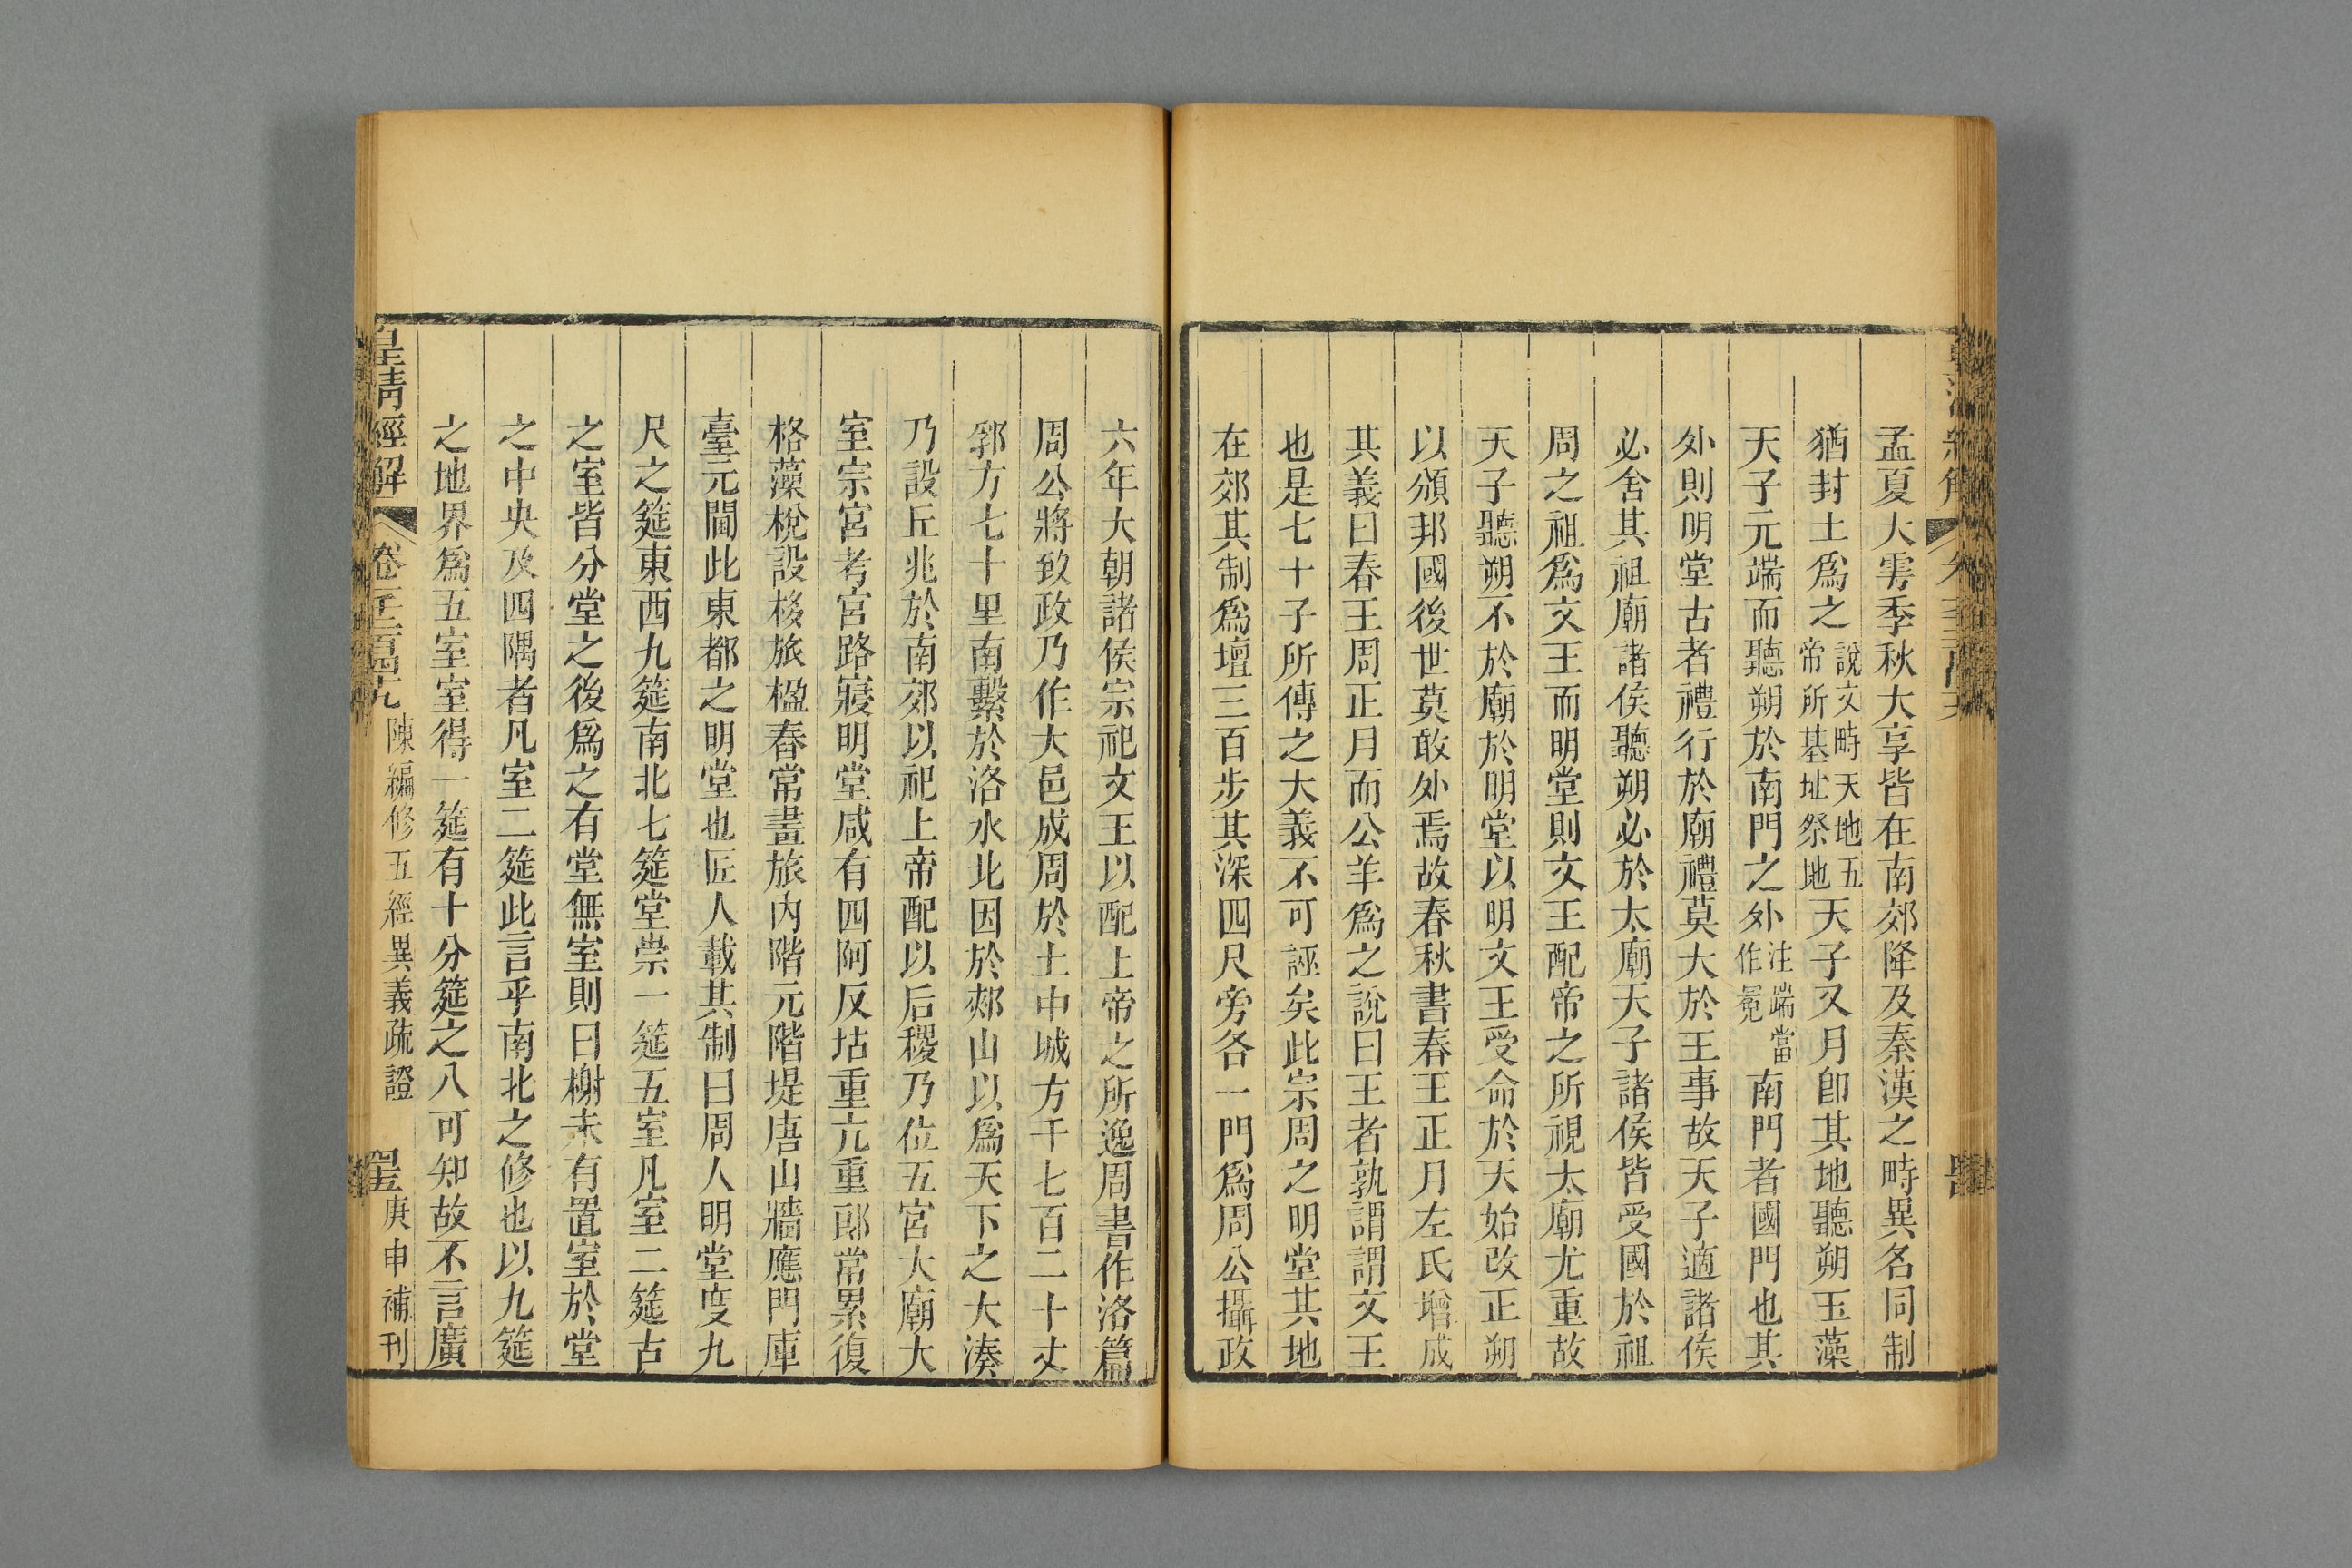 孟夏大雩季秋大享皆在南郊降及秦漢之畤異名同制
猶封土爲之說文畤天地五帝所基址祭地天子又月卽其地聽朔玉藻
天子元端而聽朔於南門之外注端當作冕南門者國門也其
外則明堂古者禮行於廟禮莫大於王事故天子適諸侯
必舍其祖廟諸侯聽朔必於太廟天子諸侯皆受國於祖
周之祖爲文王而明堂則文王配帝之所視太廟尤重故
天子聽朔不於廟於明堂以明文王受命於天始改正朔
以頒邦國後世莫敢外焉故春秋書春王正月左氏增成
其義曰春王周正月而公羊爲之說曰王者孰謂謂文王
也是七十子所傳之大義不可誣矣此宗周之明堂其地
在郊其制爲壇三百步其深四尺旁各一門爲周公攝政
六年大朝諸侯宗祀文王以配上帝之所逸周書作洛篇
周公將致政乃作大邑成周於土中城方千七百二十丈
郛方七十里南繫於洛水北因於郟山以爲天下之大湊
乃設丘兆於南郊以祀上帝配以后稷乃位五宮大廟大
室宗宮考宮路寢明堂咸有四阿反坫重亢重郎常累復
格藻梲設移旅楹春常畫旅內階元階堤唐山牆應門庫
臺元閫此東都之明堂也匠人載其制曰周人明堂度九
尺之筵東西九筵南北七筵堂崇一筵五室凡室二筵古
之室皆分堂之後爲之有堂無室則曰榭未有置室於堂
之中央及四隅者凡室二筵此言乎南北之修也以九筵
之地界爲五室室得一筵有十分筵之八可知故不言廣
皇清經解 卷 陳編修五經異義疏證 庚申補刊